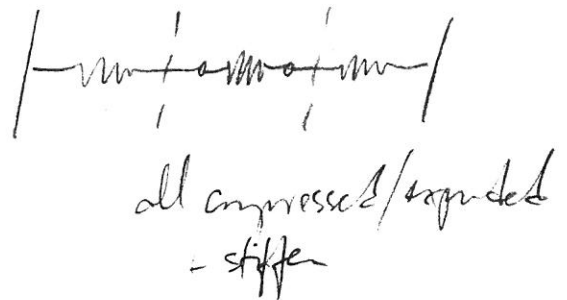 all compressed/expanded
- stiffer